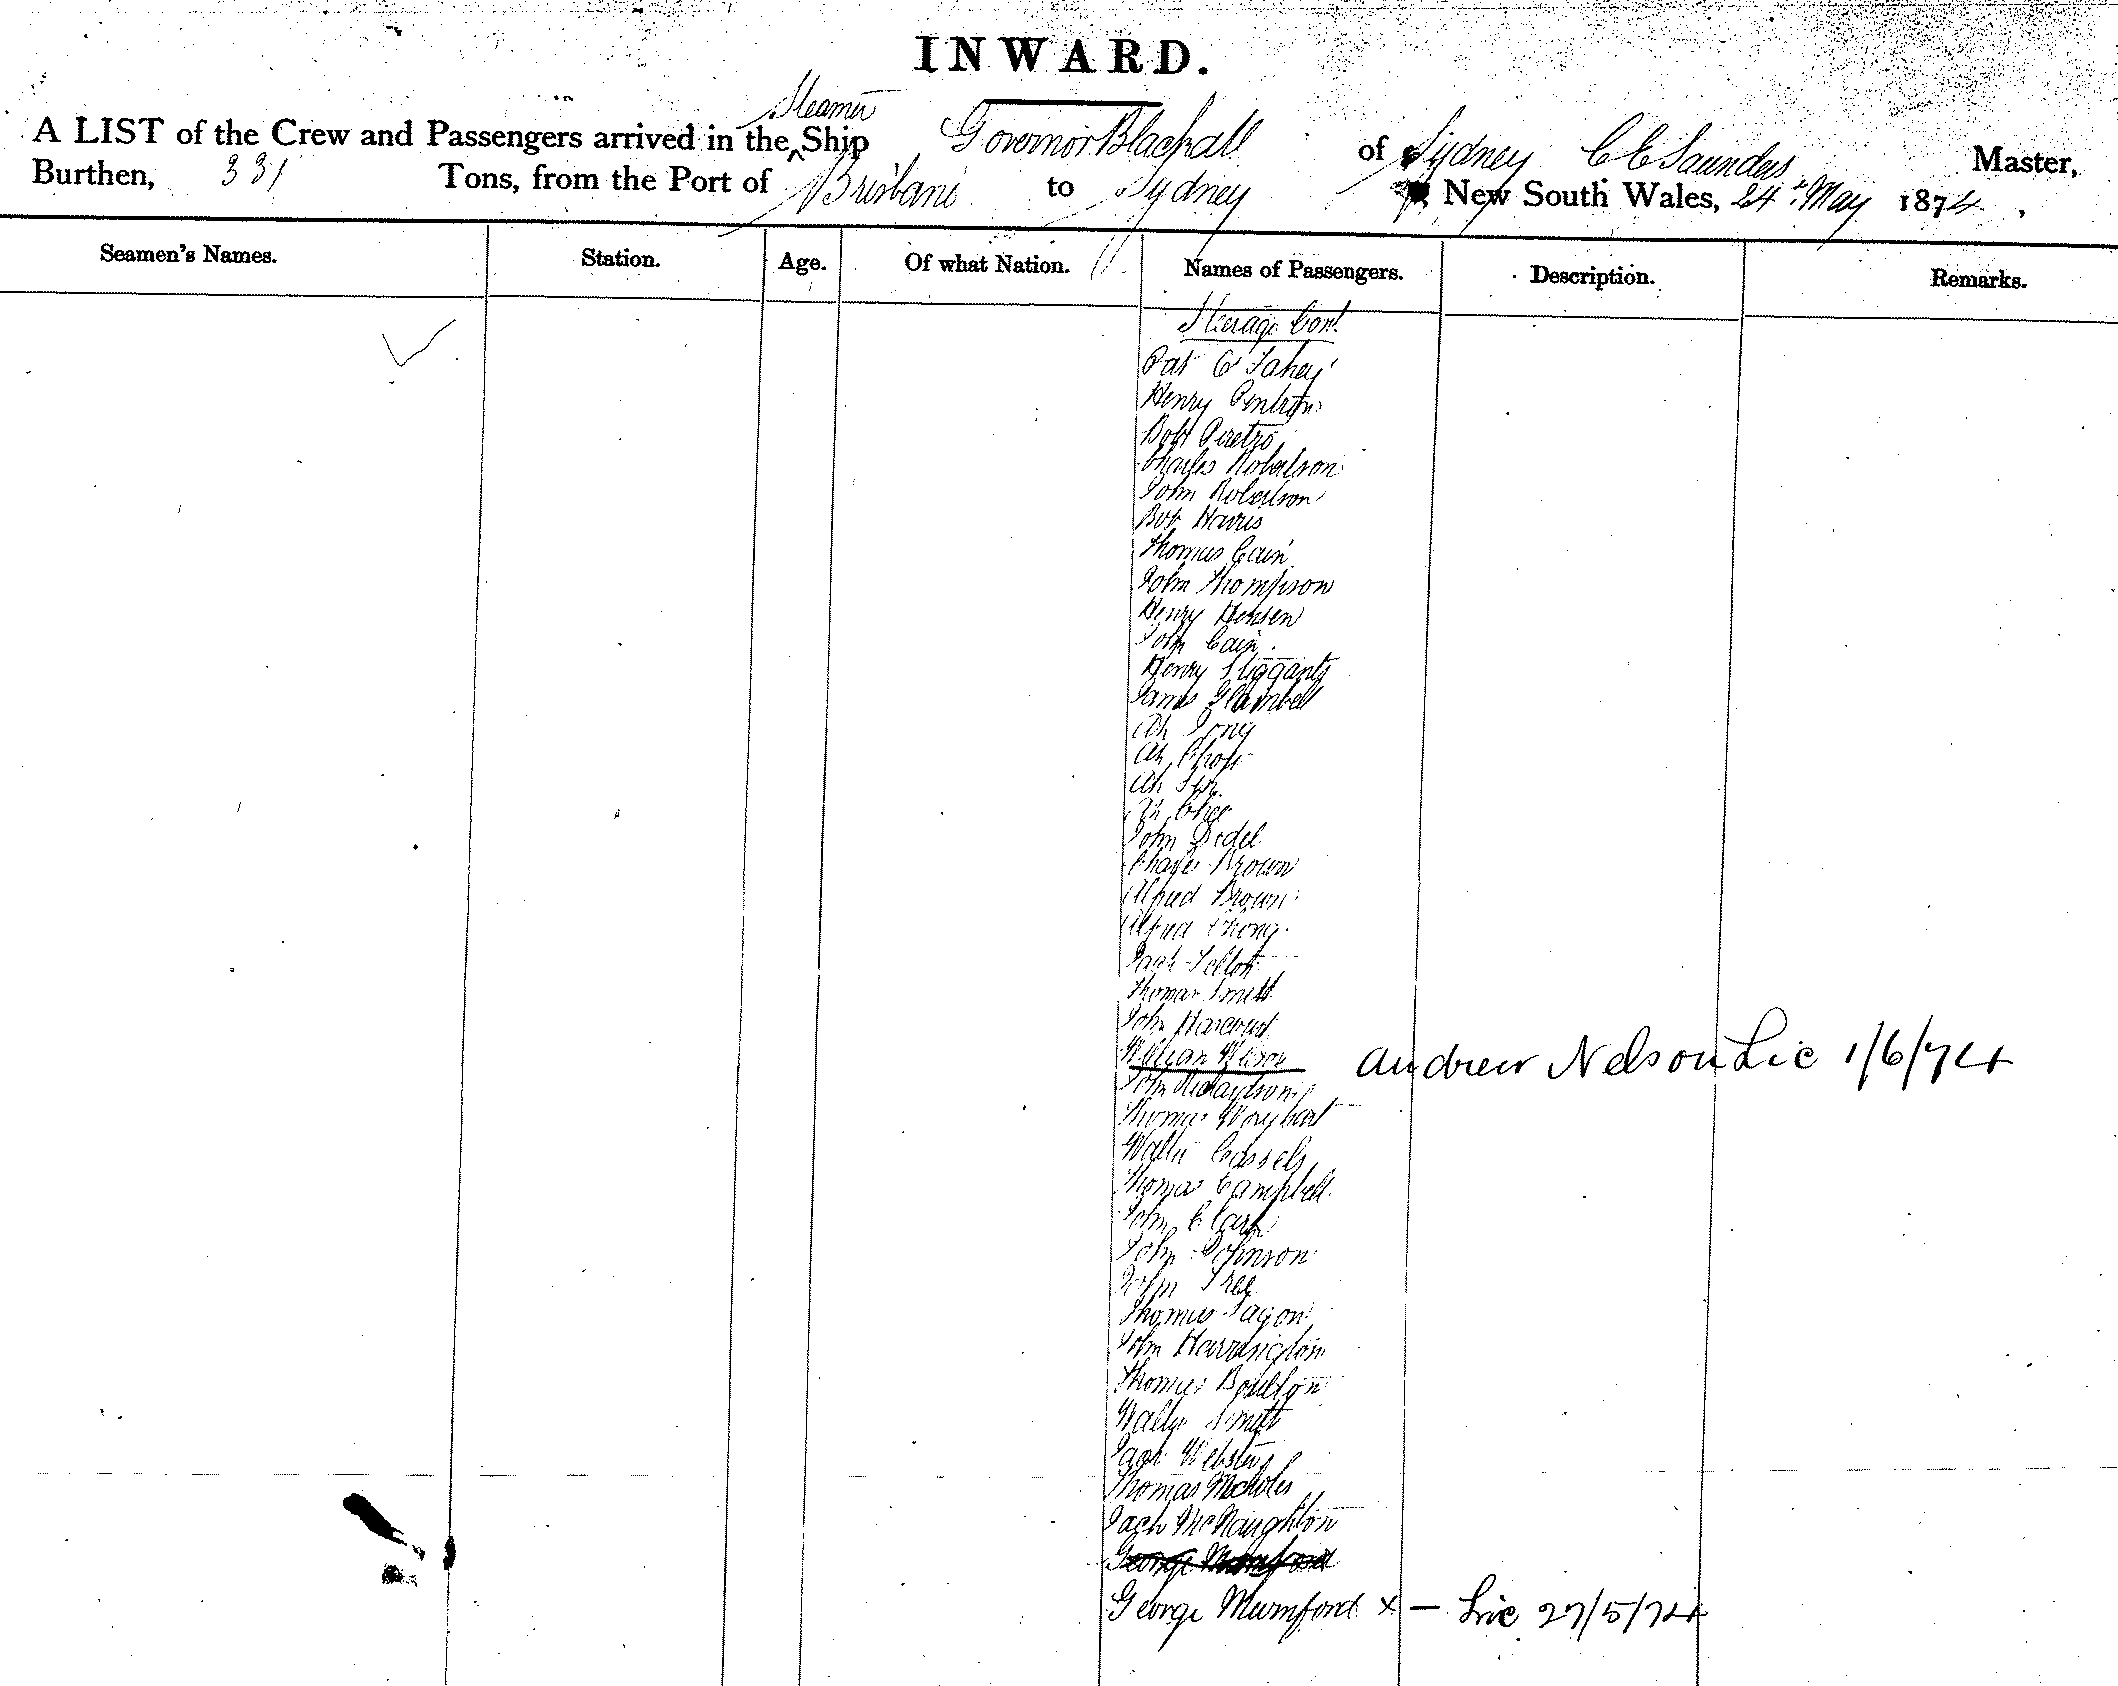 INWARD.
Steamer
A LIST of the Crew and Passengers arrived in the ^ Ship Governor Blackall of Sydney C C Saunders Master,
Burthen, 331 Tons, from the Port of Brisbane to Sydney New South Wales, 24th May 1874,
Seamen's Names. Station. Age. Of what Nation. Names of Passengers. Description. Remarks.
Steerage Cont.
Pat O Fahey
Henry
Bob
Charles Robertson
John Robertson
Bob Harris
Thomas Cain
John Thompson
Henry Hensen
John Cain
Henry Stiggants
James
Ah Tong
Ah
Ah
Ah Chee
John Dedel
Charles Brown
Alfred Brown
Alfred Chong
Jack
Thomas Smith
John Harcourt
William Andrew Nelson Lic 1/6/74
John
Thomas
Walter Cassels
Thomas Campbell
John Clark
John Johnson
John Free
Thomas Fagon
John Harrington
Thomas Boulton
Walter Smith
Jack Webster
Thomas Nicholes
Jack McNaughton
George Mumford
George Mumford x — Lic 27/5/74